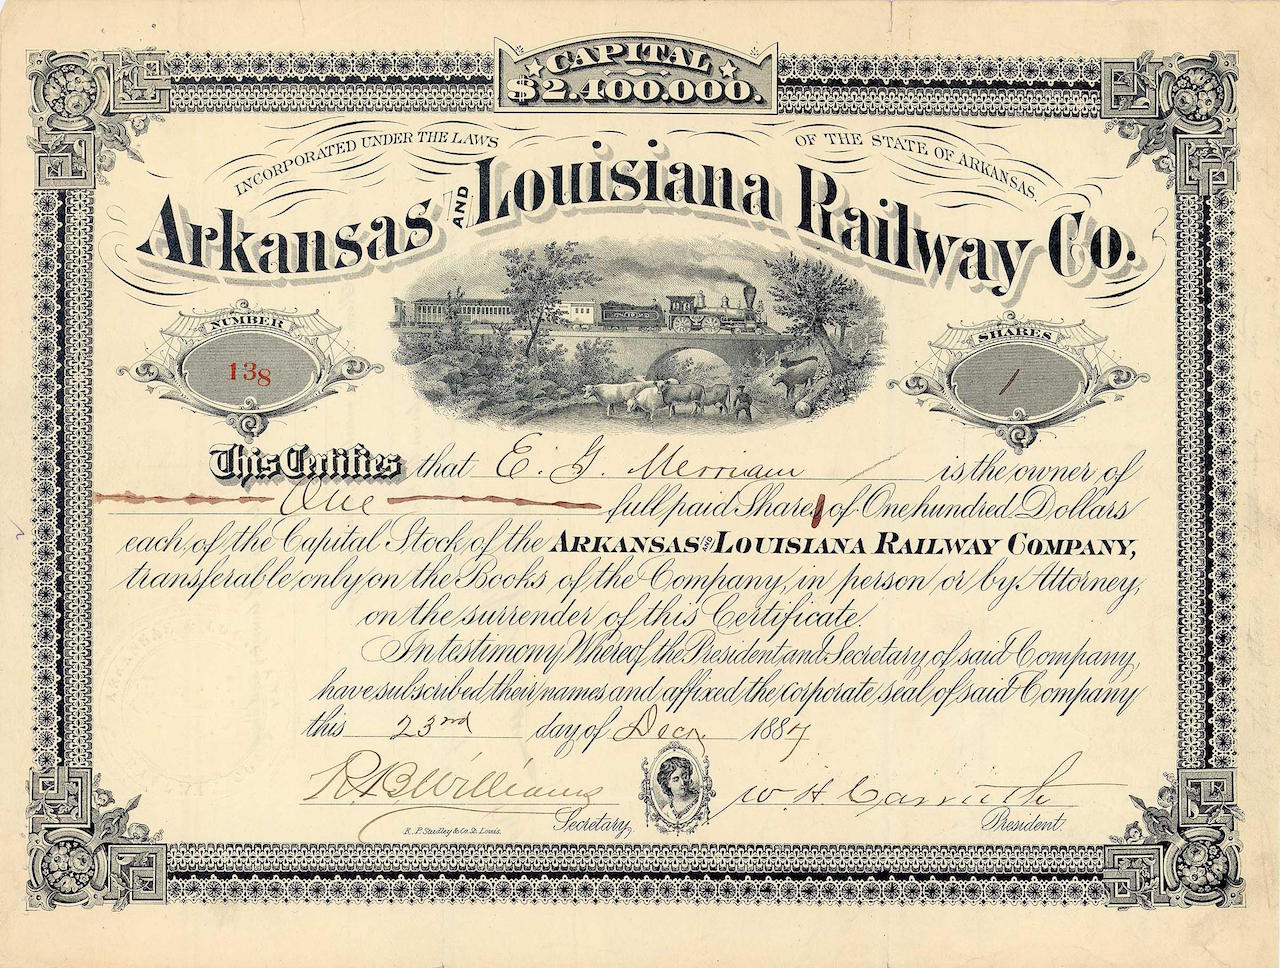 CAPITAL
$2.400.000.
INCORPORATED UNDER THE LAWS OF THE STATE OF ARKANSAS.
Arkansas AND Louisiana Railway Co.
NUMBER
138
SHARES
1
This Certifies that E. G. Merriam is the owner of
One full paid Shares of One hundred Dollars
each, of the Capital Stock of the ARKANSAS AND LOUISIANA RAILWAY COMPANY,
transferable only on the Books of the Company, in person or by Attorney,
on the surrender of this Certificate.
In testimony Whereof the President and Secretary of said Company,
have subscribed their names and affixed the corporate seal of said Company
this 23rd day of Decr. 1887
R B Williams
W H Carruth
R. P. Studley & Co. St. Louis.
Secretary.
President.